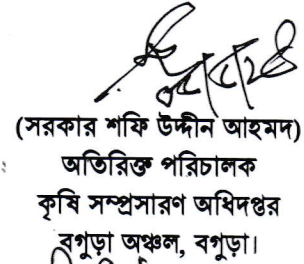 (সরকার শফি উদ্দীন আহমদ)
অতিরিক্ত পরিচালক
কৃষি সম্প্রসারণ অধিদপ্তর
বগুড়া অঞ্চল, বগুড়া।